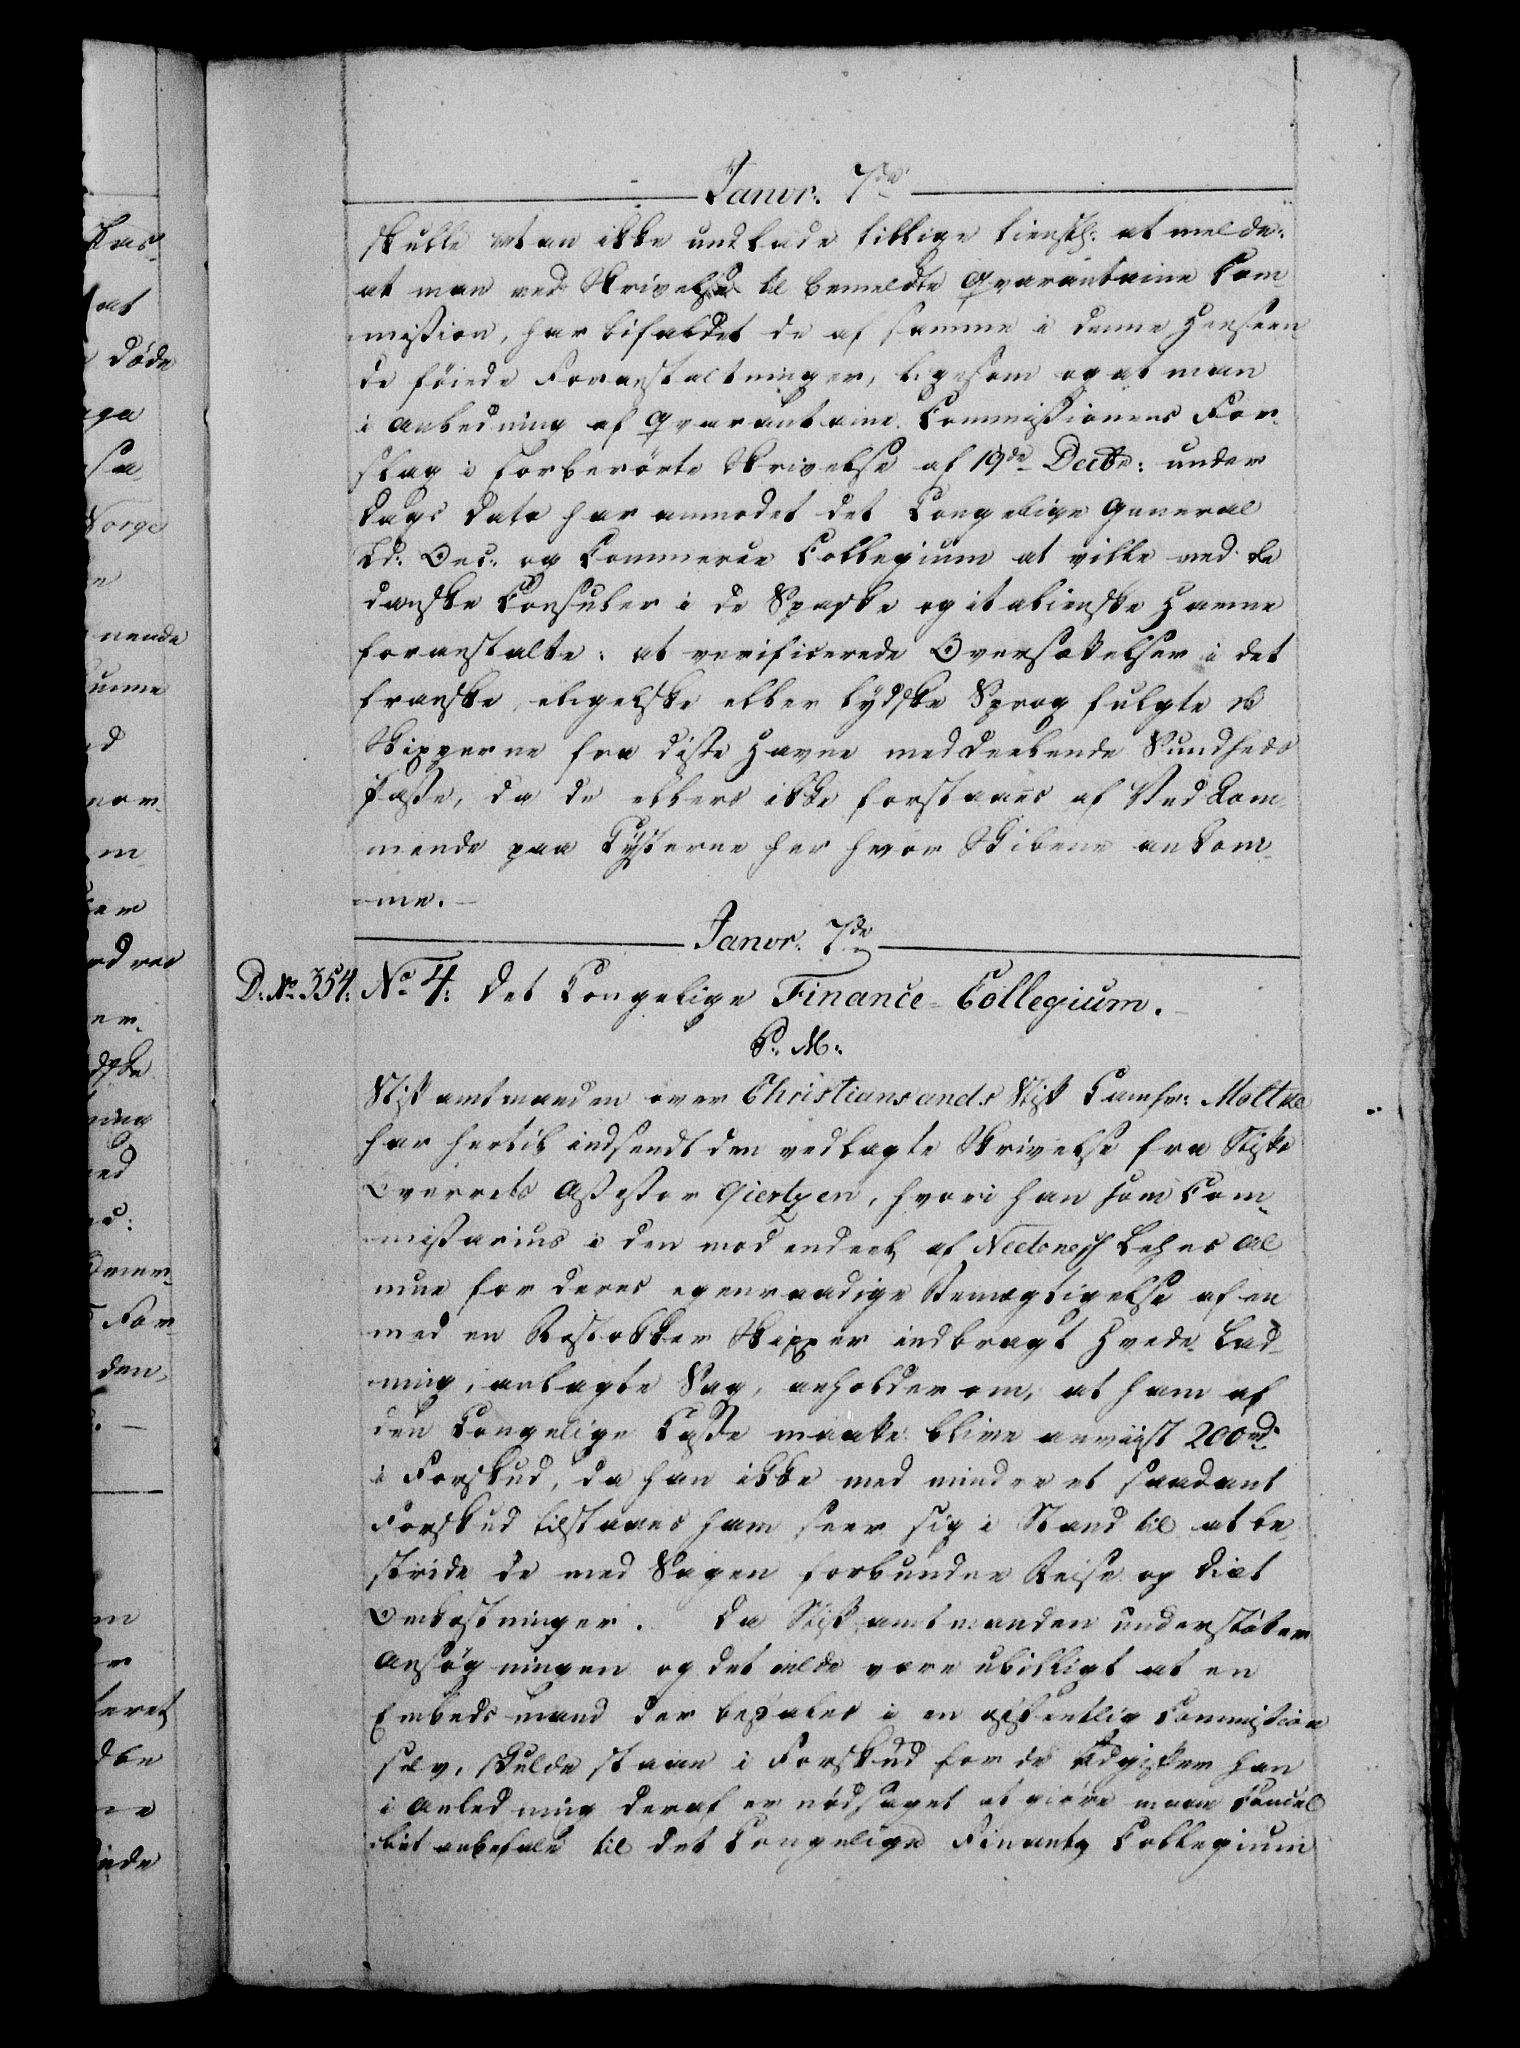 Janvr: 7de
skulle Man ikke undlade tillige tienstl: at melde:
at man ved Skrivelse til bemeldte Qvarantaine Com¬
mission, har bifaldet de af samme i denne Henseen
de føiede Foranstaltninger, ligesom og at man
i Anledning af Qvarantaine Commissionens For¬
slag i forberørte Skrivelse af 19de Decbr: under
Dags Dato har anmodet det Kongelige General
Ld: Oec: og Commerce Collegium at ville ved de
danske Consuler i de Spanske og italienske Havne
foranstalte: at verificerede Oversættelser i det
franske, engelske eller tydske Sprog fulgte de
Skipperne fra disse Havne meddeelende Sundheds
Passe, da de ellers ikke forstaaes af Vedkom¬
mende paa Kysterne her hvor Skibene ankom¬
me.
Janvr: 7de
D: No 354: No 4: Det Kongelige Finance-Collegium.
P. M:
Stiftamtmanden over Christiansands Stift Camhr: Moltke
har hertil indsendt den vedlagte Skrivelse fra Stifts
Overrets Assessor Giertzen, hvori han som Com¬
missarius i den mod endeel af Lehns Al
mue for deres egenraadige Bemægtigelse af en
med en Rostokker Skipper indbragt Hvede Lad¬
ning, anlagte Sag, anholder om, at ham af
den Kongelige Casse maatte blive anviist 200rd
i Forskud, da han ikke med mindre et saadant
Forskud tilstaaes ham seer sig i Stand til at be¬
stride de med Sagen forbundne Reise og Diæt
Omkostninger. Da Stiftamtmanden understøtter
Ansøgningen og det vilde være ubilligt at en
Embedsmand der befales i en offentlig Commission
selv, skulde staae i Forskud for de Udgifter han
i Anledning deraf er nødsaget at giøre maae Cancel
liet anbefale til det Kongelige Finantz Collegium